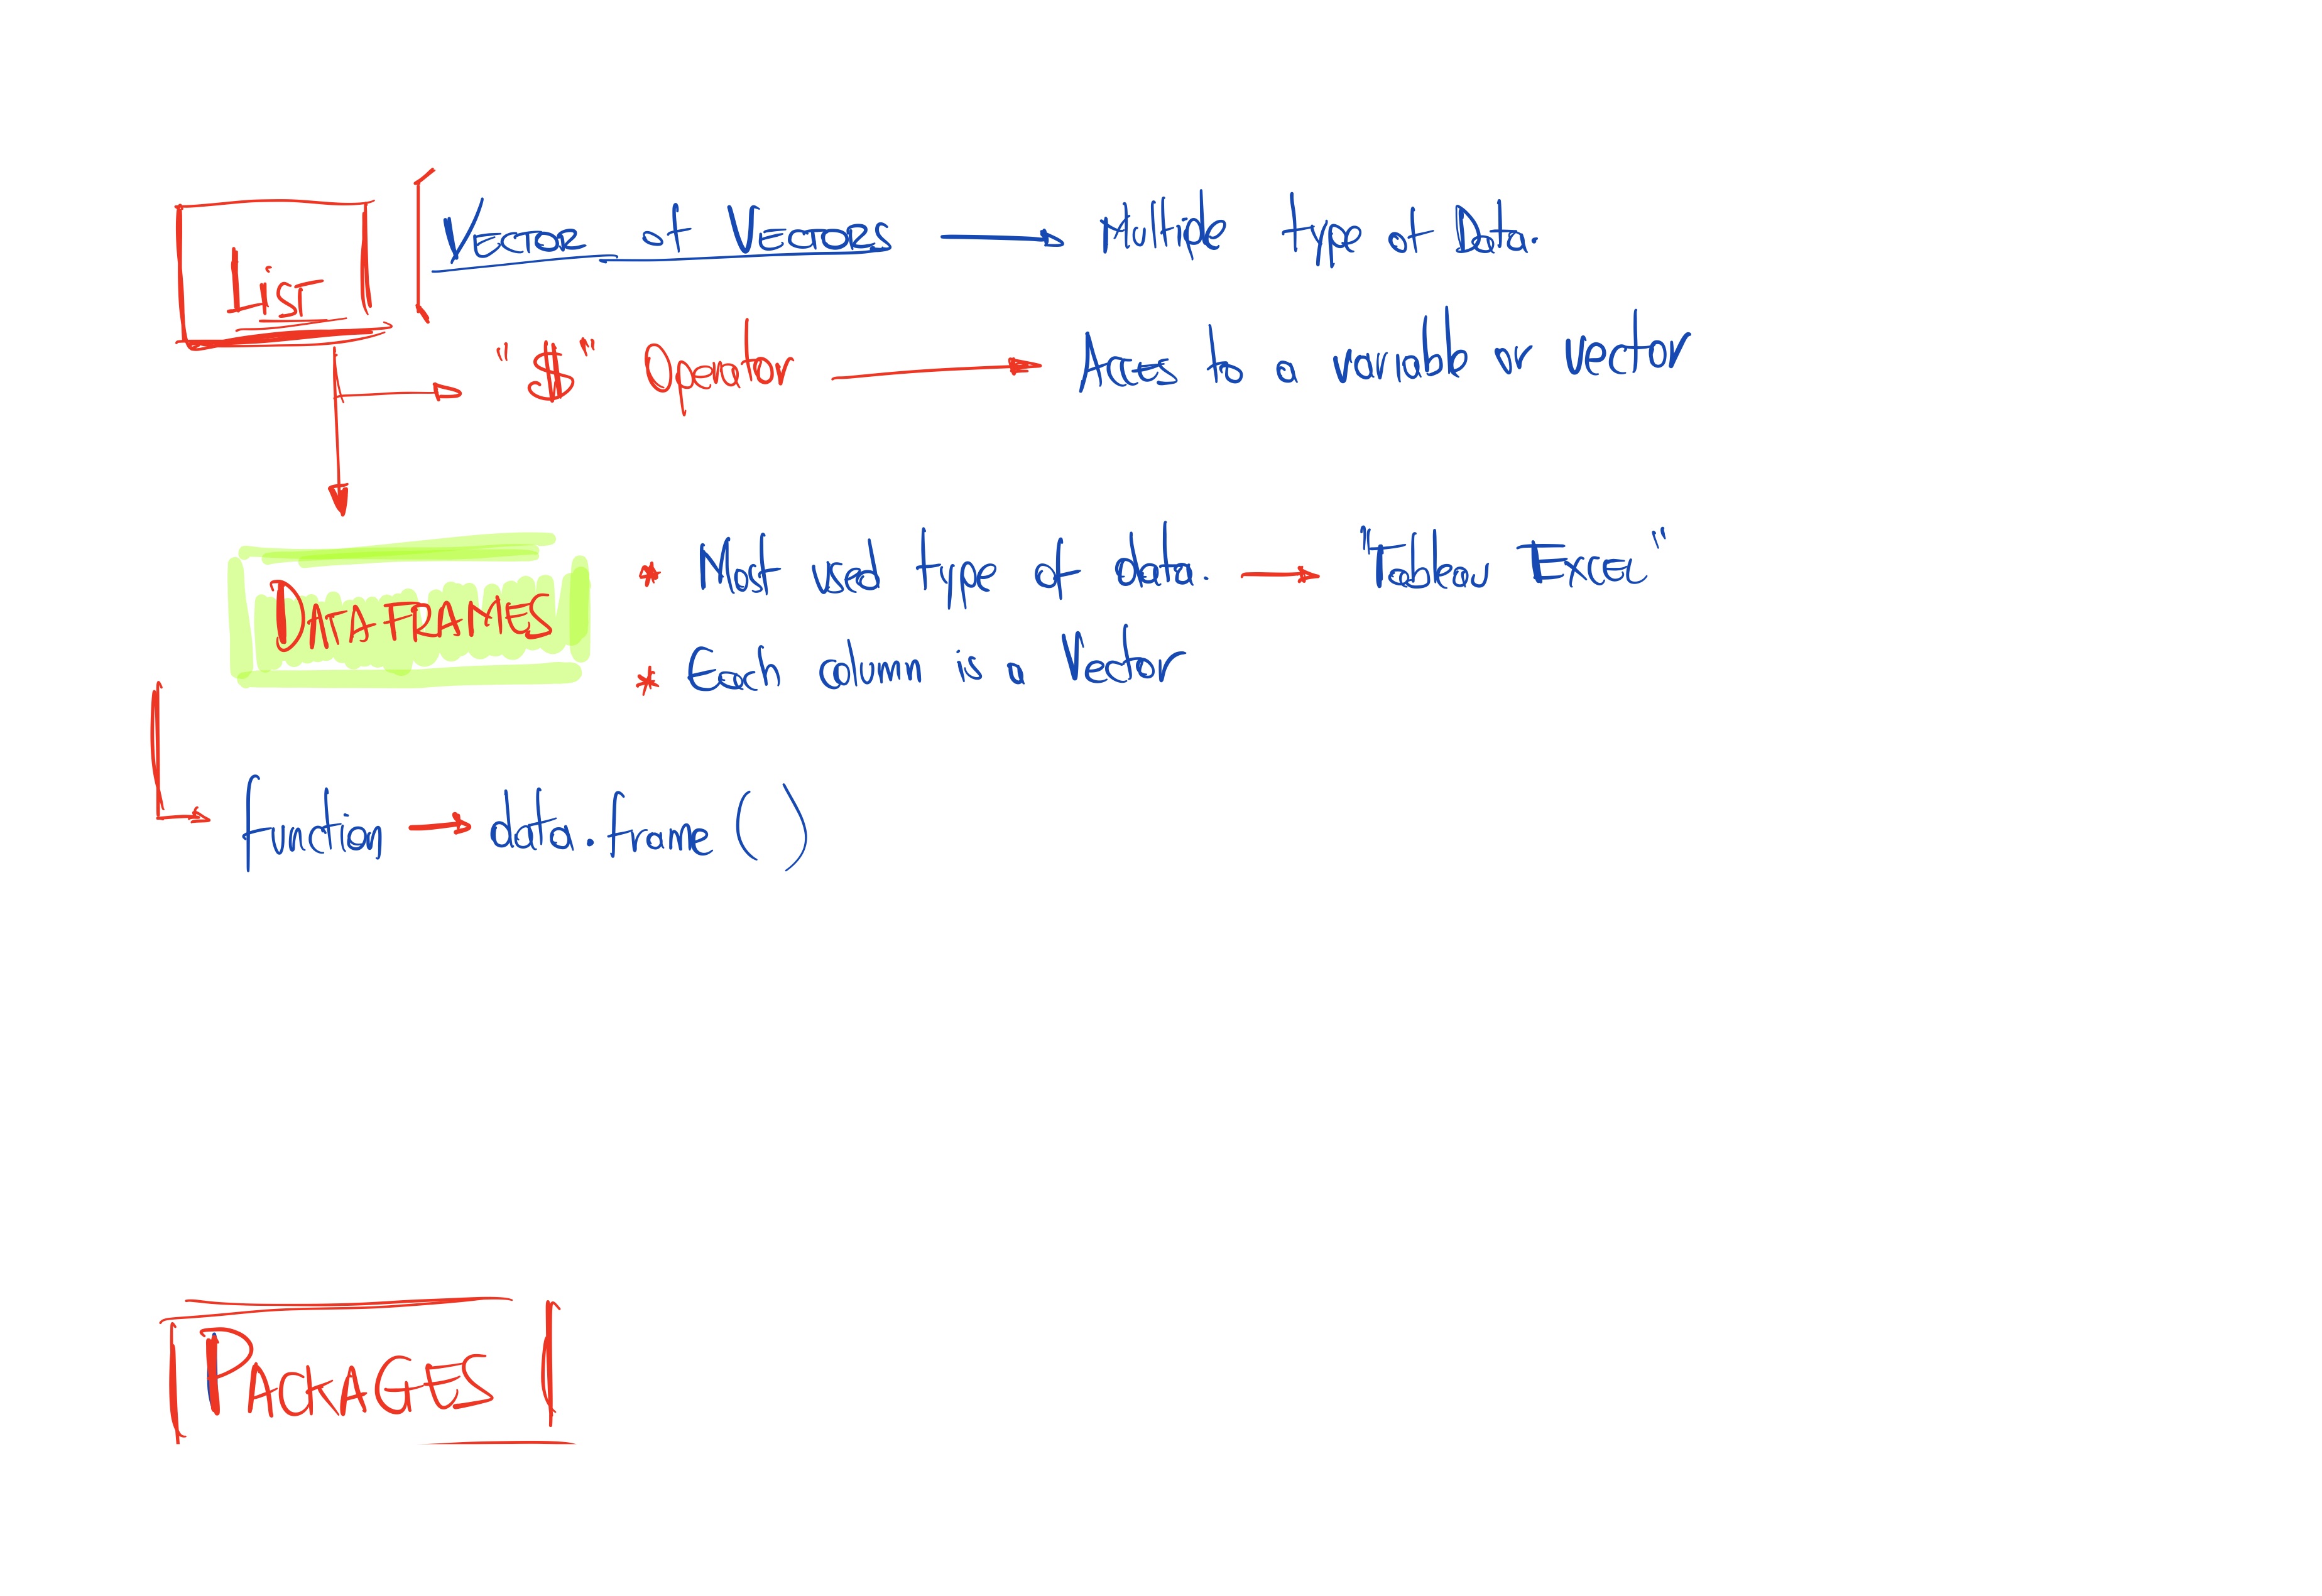 List
Vector of Vectors → Multiple type of Data.
"$" Operator → Acces to a variable or vector
DATAFRAMES
* Most used type of data. → "Tableau Excel"
* Each column is a Vector
function → data.frame ( )
PACKAGES